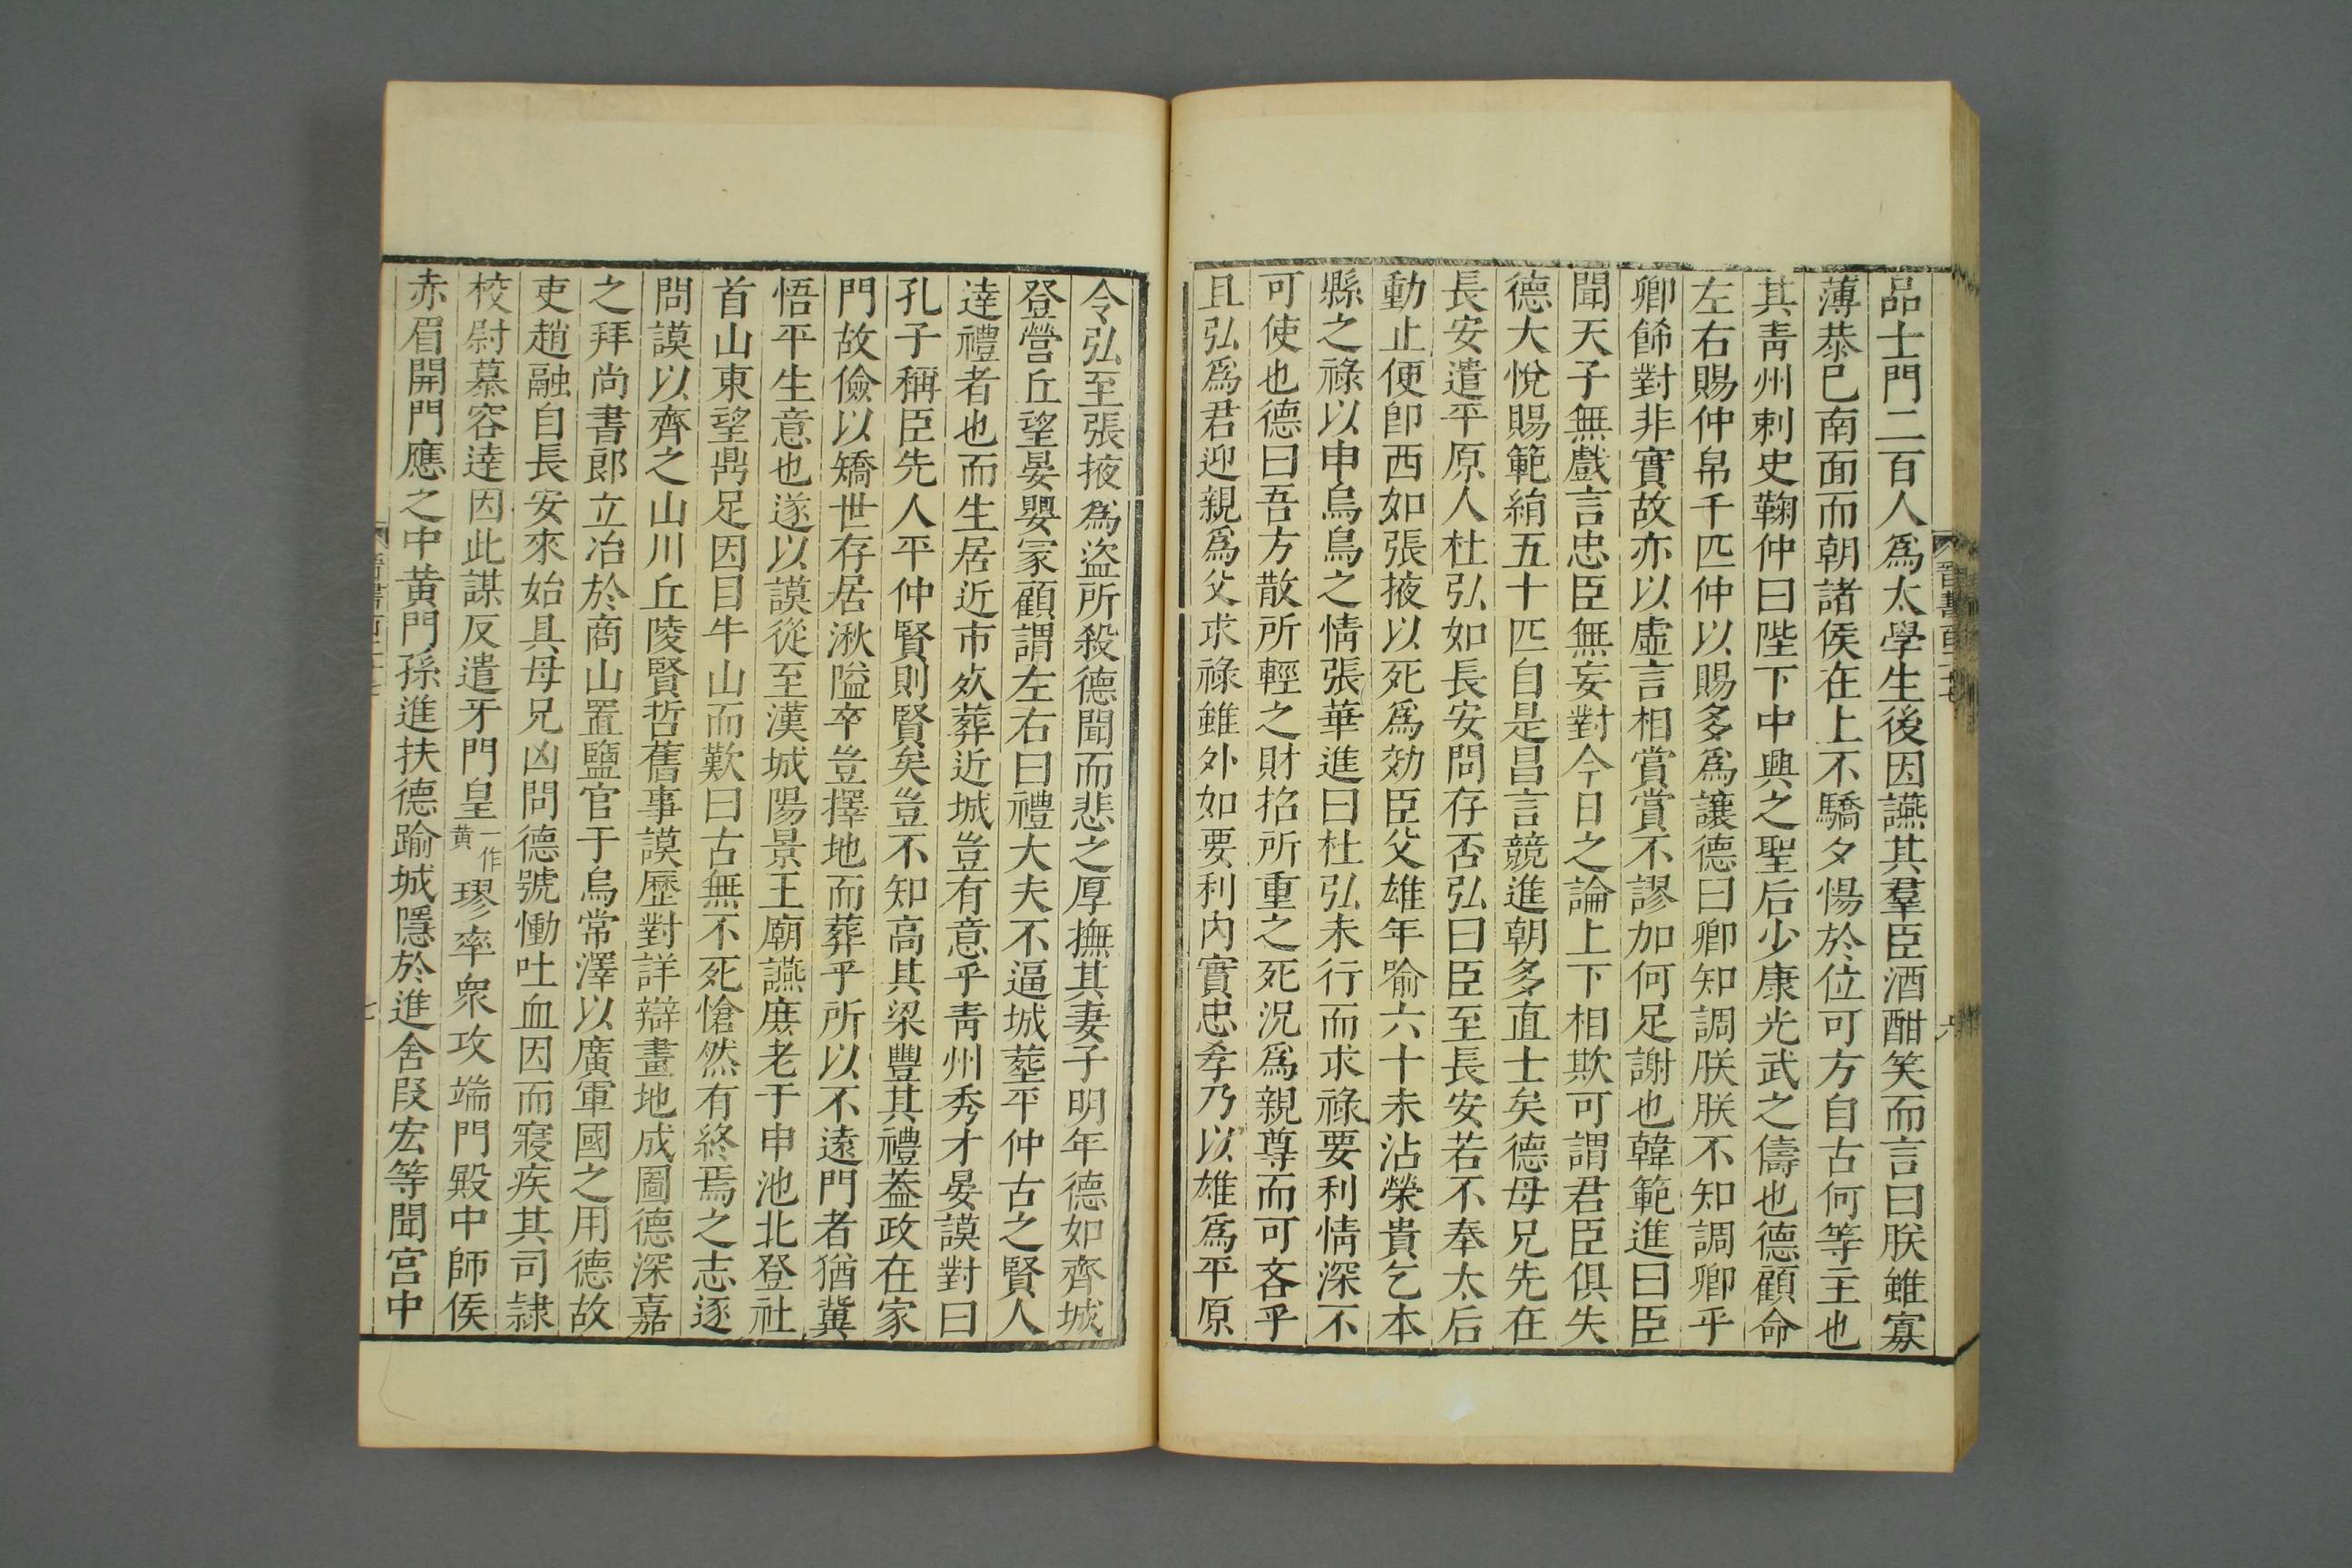 品士門二百人爲太學生後因讌其羣臣酒酣笑而言曰朕雖寡
薄恭巳南面而朝諸侯在上不驕夕惕於位可方自古何等主也
其青州刺史鞠仲曰陛下中興之聖后少康光武之儔也德顧命
左右賜仲帛千匹仲以賜多爲讓德曰卿知調朕朕不知調卿乎
卿飾對非實故亦以虛言相賞賞不謬加何足謝也韓範進曰臣
聞天子無戲言忠臣無妄對今日之論上下相欺可謂君臣俱失
德大悅賜範絹五十匹自是昌言競進朝多直士矣德母兄先在
長安遣平原人杜弘如長安問存否弘曰臣至長安若不奉太后
動止便卽西如張掖以死爲効臣父雄年踰六十未沾榮貴乞本
縣之祿以申烏鳥之情張華進曰杜弘未行而求祿要利情深不
可使也德曰吾方散所輕之財招所重之死況爲親尊而可吝乎
且弘爲君迎親爲父求祿雖外如要利內實忠孝乃以雄爲平原
晉書百二十七
六
令弘至張掖爲盜所殺德聞而悲之厚撫其妻子明年德如齊城
登營丘望晏嬰冢顧謂左右曰禮大夫不逼城塟平仲古之賢人
達禮者也而生居近市㱙葬近城豈有意乎青州秀才晏謨對曰
孔子稱臣先人平仲賢則賢矣豈不知高其梁豐其禮葢政在家
門故儉以矯世存居湫隘卒豈擇地而葬乎所以不遠門者猶冀
悟平生意也遂以謨從至漢城陽景王廟讌庶老于申池北登社
首山東望鼎足因目牛山而歎曰古無不死愴然有終焉之志逐
問謨以齊之山川丘陵賢哲舊事謨歷對詳辯畫地成圖德深嘉
之拜尚書郎立冶於商山置鹽官于烏常澤以廣軍國之用德故
吏趙融自長安來始具母兄凶問德號慟吐血因而寢疾其司隷
校尉慕容達因此謀反遣牙門皇一作黄璆率衆攻端門殿中師侯
赤眉開門應之中黄門孫進扶德踰城隱於進舍段宏等聞宮中
晉書百二十七
七